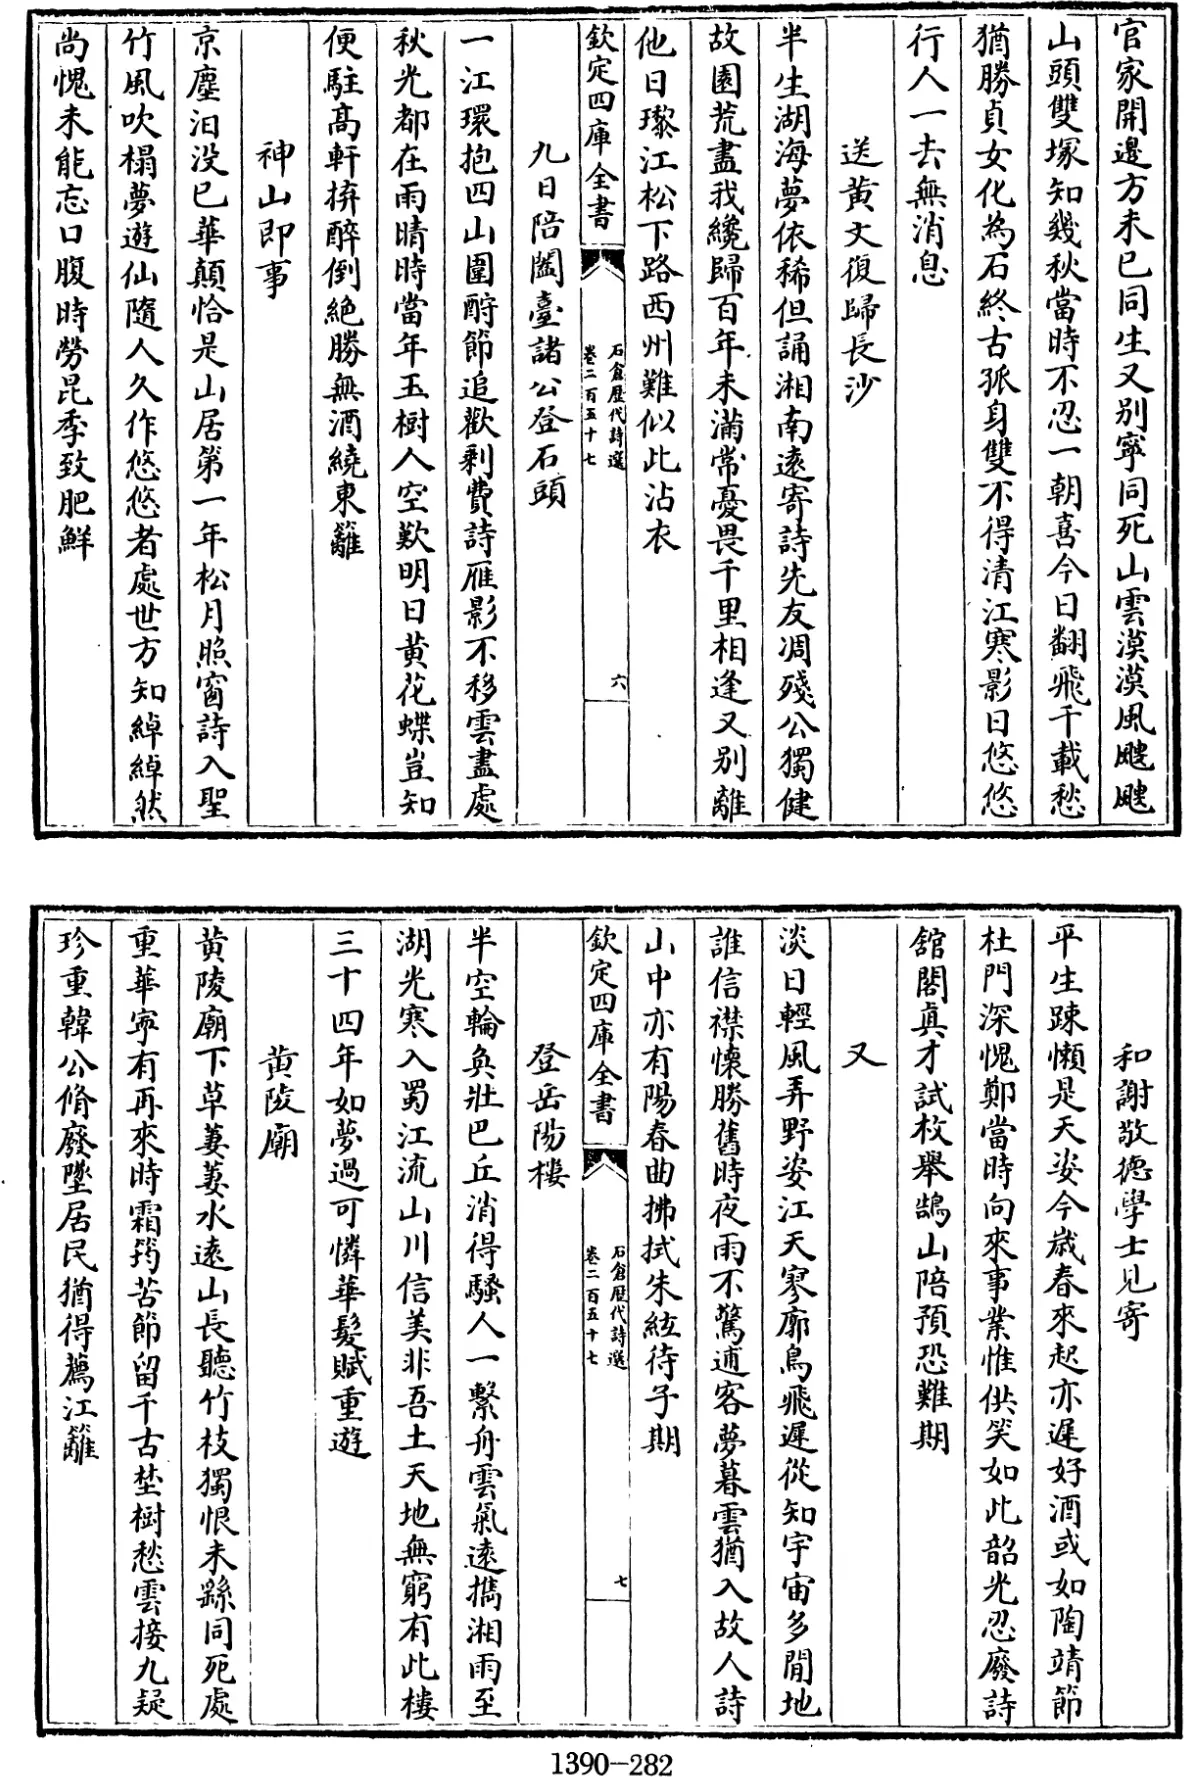 官家開邊方未已同生又别寜同死山雲漠漠風颼颼
山頭雙塚知幾秋當時不忍一朝喜今日翻飛千載愁
猶勝貞女化為石終古孤身雙不得清江寒影日悠悠
行人一去無消息
送黄文復歸長沙
半生湖海夢依稀但誦湘南遠寄詩先友凋殘公獨健
故園荒盡我纔歸百年未滿常憂畏千里相逢又别離
他日瓈江松下路西州難似此沾衣
欽定四庫全書
石倉歴代詩選
卷二百五十七
六
九日陪闔臺諸公登石頭
一江環抱四山圍酹節追歡剩費詩雁影不移雲盡處
秋光都在雨晴時當年玉樹人空歎明日黄花蝶豈知
便駐髙軒拚醉倒絶勝無酒繞東籬
神山即事
京塵汩没已華顛恰是山居第一年松月照窗詩入聖
竹風吹榻夢遊仙隨人久作悠悠者處世方知綽綽然
尚愧未能忘口腹時勞昆季致肥鮮
和謝敬徳學士見寄
平生踈懶是天姿今歳春來起亦遲好酒或如陶靖節
杜門深愧鄭當時向來事業惟供笑如此韶光忍廢詩
舘閣真才試枚舉鵠山陪預恐難期
又
淡日輕風弄野姿江天寥廓鳥飛遲從知宇宙多閒地
誰信襟懷勝舊時夜雨不驚逋客夢暮雲猶入故人詩
山中亦有陽春曲拂拭朱絃待子期
欽定四庫全書
石倉歴代詩選
卷二百五十七
七
登岳陽樓
半空輪奐壯巴丘消得騷人一繫舟雲氣遠擕湘雨至
湖光寒入蜀江流山川信美非吾土天地無窮有此樓
三十四年如夢過可憐華髮賦重遊
黄陵廟
黄陵廟下草萋萋水遠山長聽竹枝獨恨未繇同死處
重華寜有再來時霜筠苦節留千古埜樹愁雲接九疑
珍重韓公脩廢墜居民猶得薦江籬
1390-282